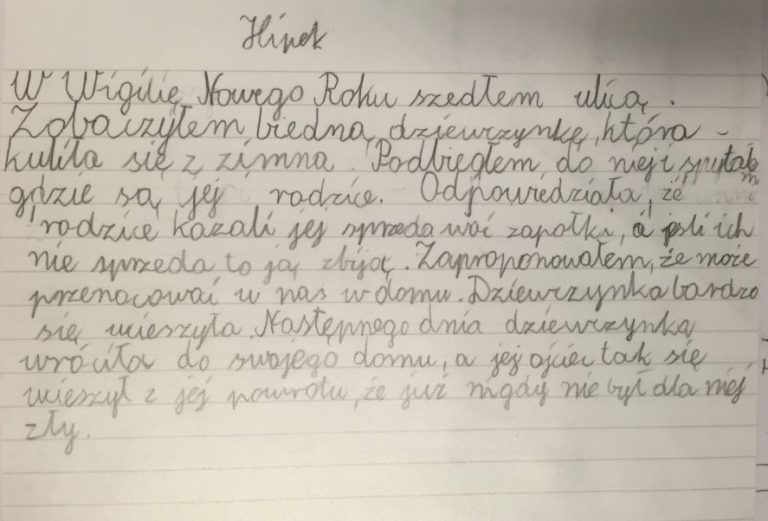 Hipek
W Wigilię Nowego Roku szedłem ulicą.
Zobaczyłem biedną dziewczynkę, która
kuliła się z zimna. Podbiegłem do niej i spytałem
gdzie są jej rodzice. Odpowiedziała, że
rodzice kazali jej sprzedawać zapałki, a jeśli ich
nie sprzeda to ją zbiją. Zaproponowałem, że może
przenocować u nas w domu. Dziewczynka bardzo
się ucieszyła. Następnego dnia dziewczynka
wróciła do swojego domu, a jej ojciec tak się
ucieszył z jej powrotu, że już nigdy nie był dla niej
zły.